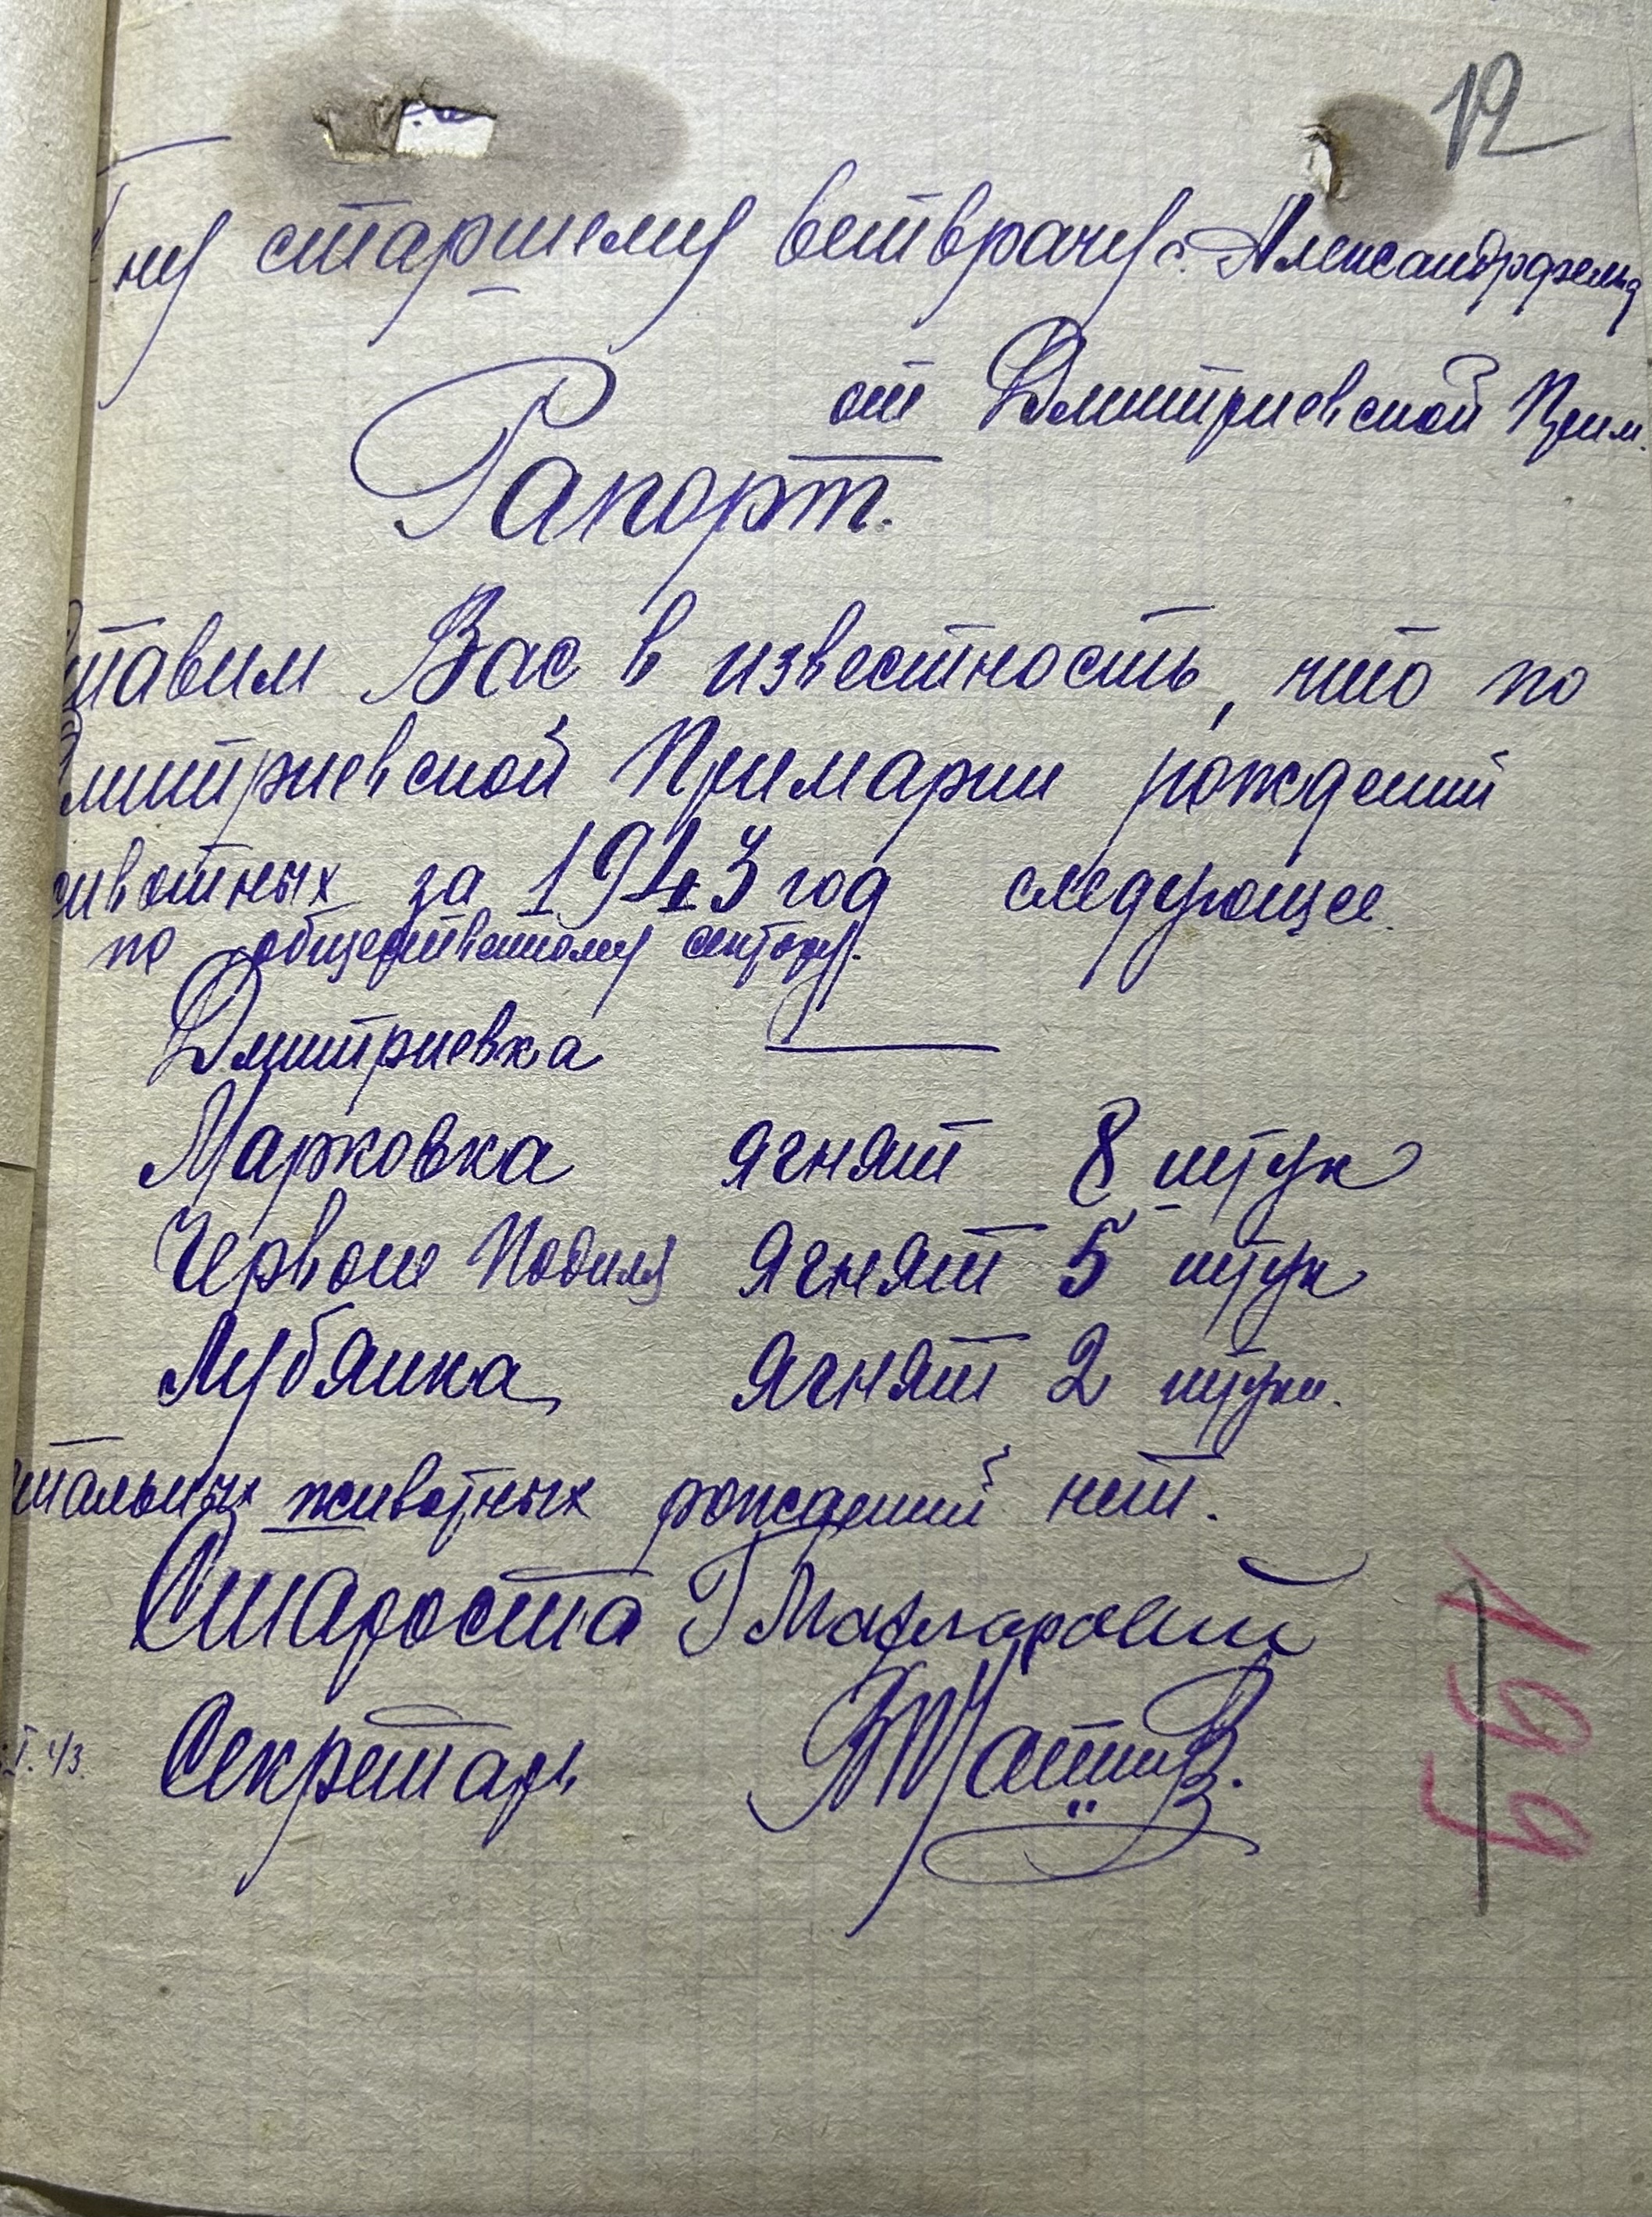 12
ну старшему ветврачу с. Александрфельд
от Дмитриевской Прим.
Рапорт.
ставим Вас в известность, что по
Дмитриевской Примарии рождений
животных за 1943 год следующее.
по общественному сектору.
Дмитриевка ———
Марковка ягнят 8 штук
Червоне Подиля ягнят 5 штук
Лубянка ягнят 2 штуки.
стальных животных рождений нет.
Староста
I.43. Секретарь
199